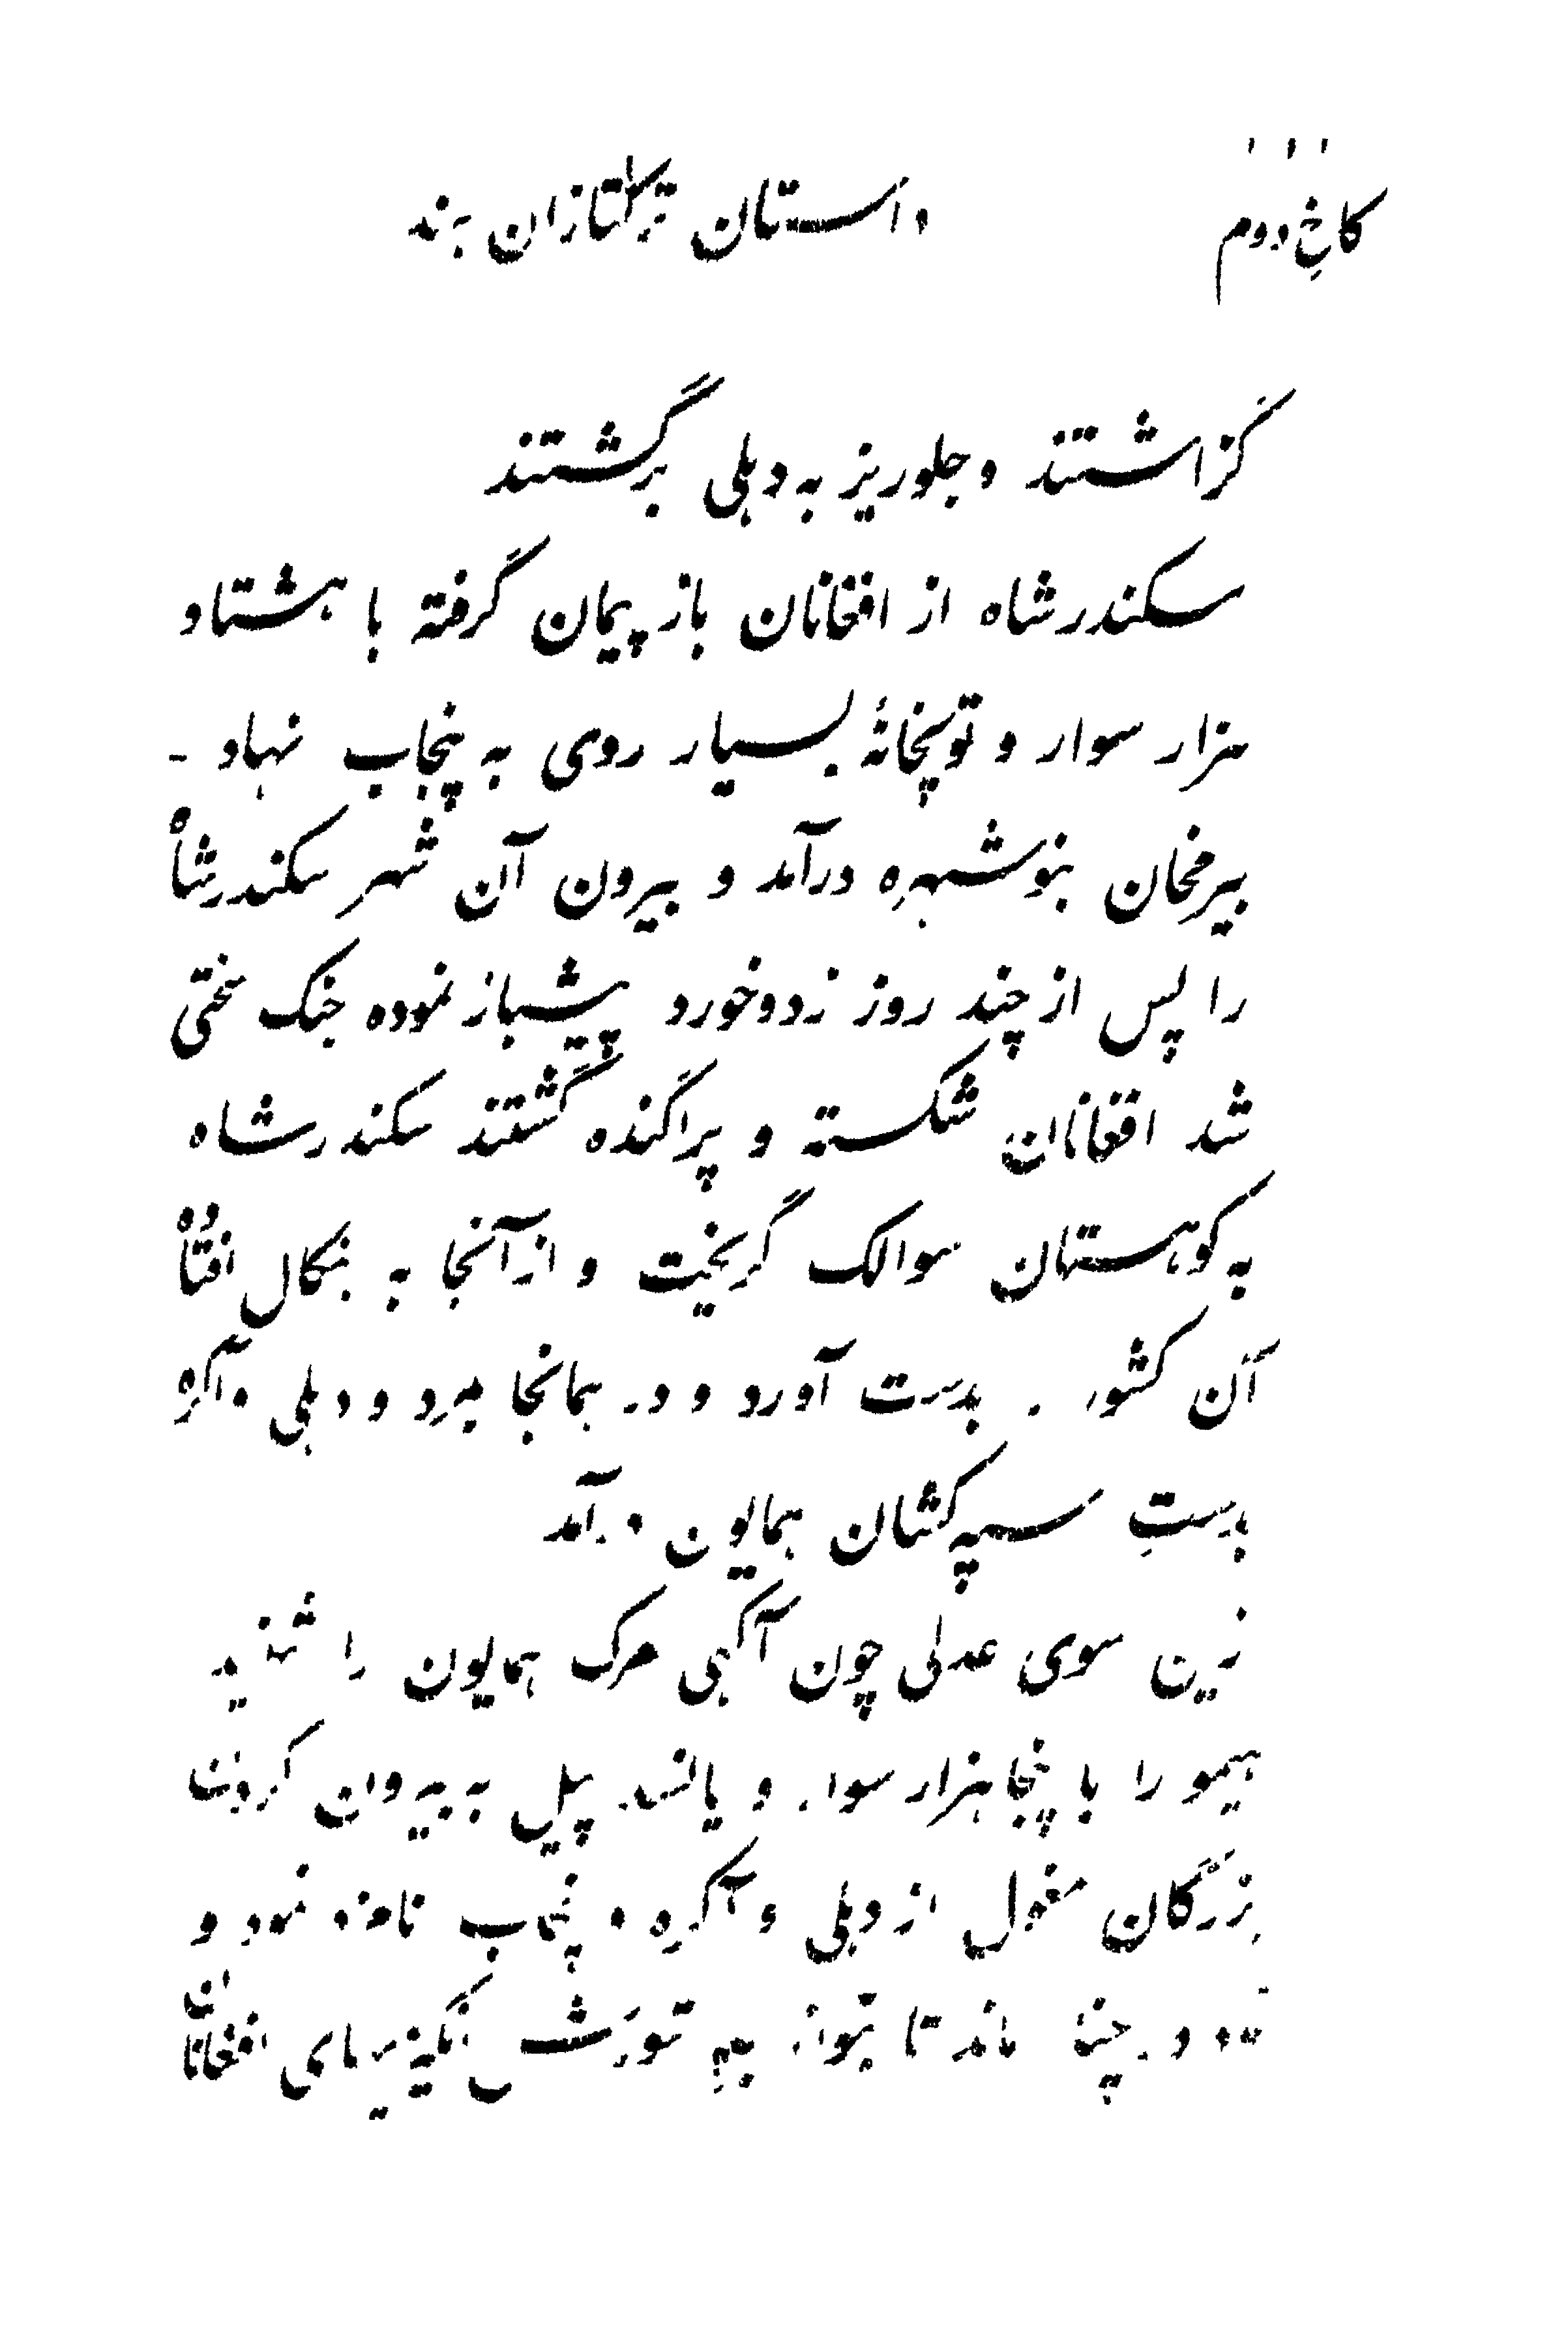 کاخ دوم داستان ترکتازان هند
گزاشتند و جلوریز به دهلی برگشتند
سکندرشاه از افغانان باز پیمان گرفته با هشتاد
هزار سوار و توپخانهٔ بسیار روی به پنجاب نهاد -
بیرمخان بنوشهره درآمد و بیرون آن شهر سکندرشاه
را پس از چند روز زدوخورد پیشباز نموده جنک سختی
شد افغانان شکسته و پراگنده گشتند سکندرشاه
به کوهستان سوالک گریخت و ازآنجا به بنکال افتاده
آن کشور بدست آورد و در همانجا بمرد و دهلی و آگره
بدستِ سپه کشان همایون درآمد
زین سوی عدلی چون آگهی مرک همایون را شنید
هیمو را با پنجاهزار سوار و پانسد پیل به بیرون کردن
بزرگان مغول از دهلی و آگره و پنجاب نامزد نمود و
خود در چنار ماند تا بتواند شورش انگیزیهای افغانان